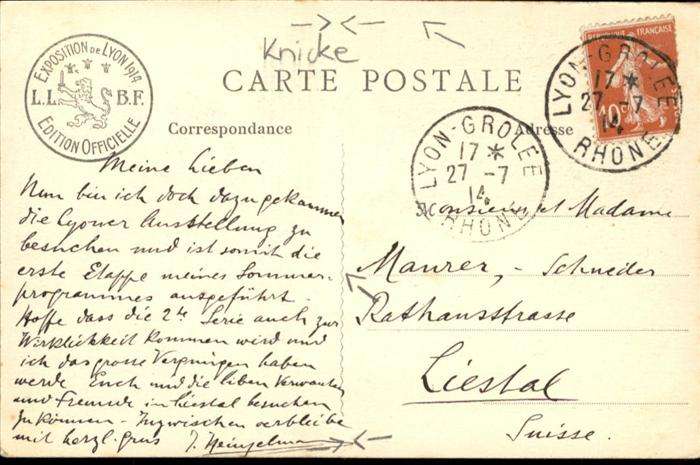 Knicke
EXPOSITION DE LYON 1914
L.L. B.F.
EDITION OFFICIELLE
CARTE POSTALE
Correspondance
Adresse
LYON-GROLÉE
17 *
27 -7
14
RHONE
LYON-GROLÉE
17 *
27 -7
14
RHONE
10c
Meine Lieben
Nun bin ich doch dazu gekommen
die Lyoner Ausstellung zu
besuchen und ist somit die
erste Etappe meines Sommer-
programmes ausgeführt.
Hoffe dass die 2te Serie auch zur
Wirklichkeit kommen wird und
ich das grosse Vergnügen haben
werde Euch und die lieben Verwandten
und Freunde in Liestal besuchen
zu können - Inzwischen verbleibe
mit herzl. grus J.
Monsieur et Madame
Maurer, - Schneider
Rathausstrasse
Liestal
Suisse.